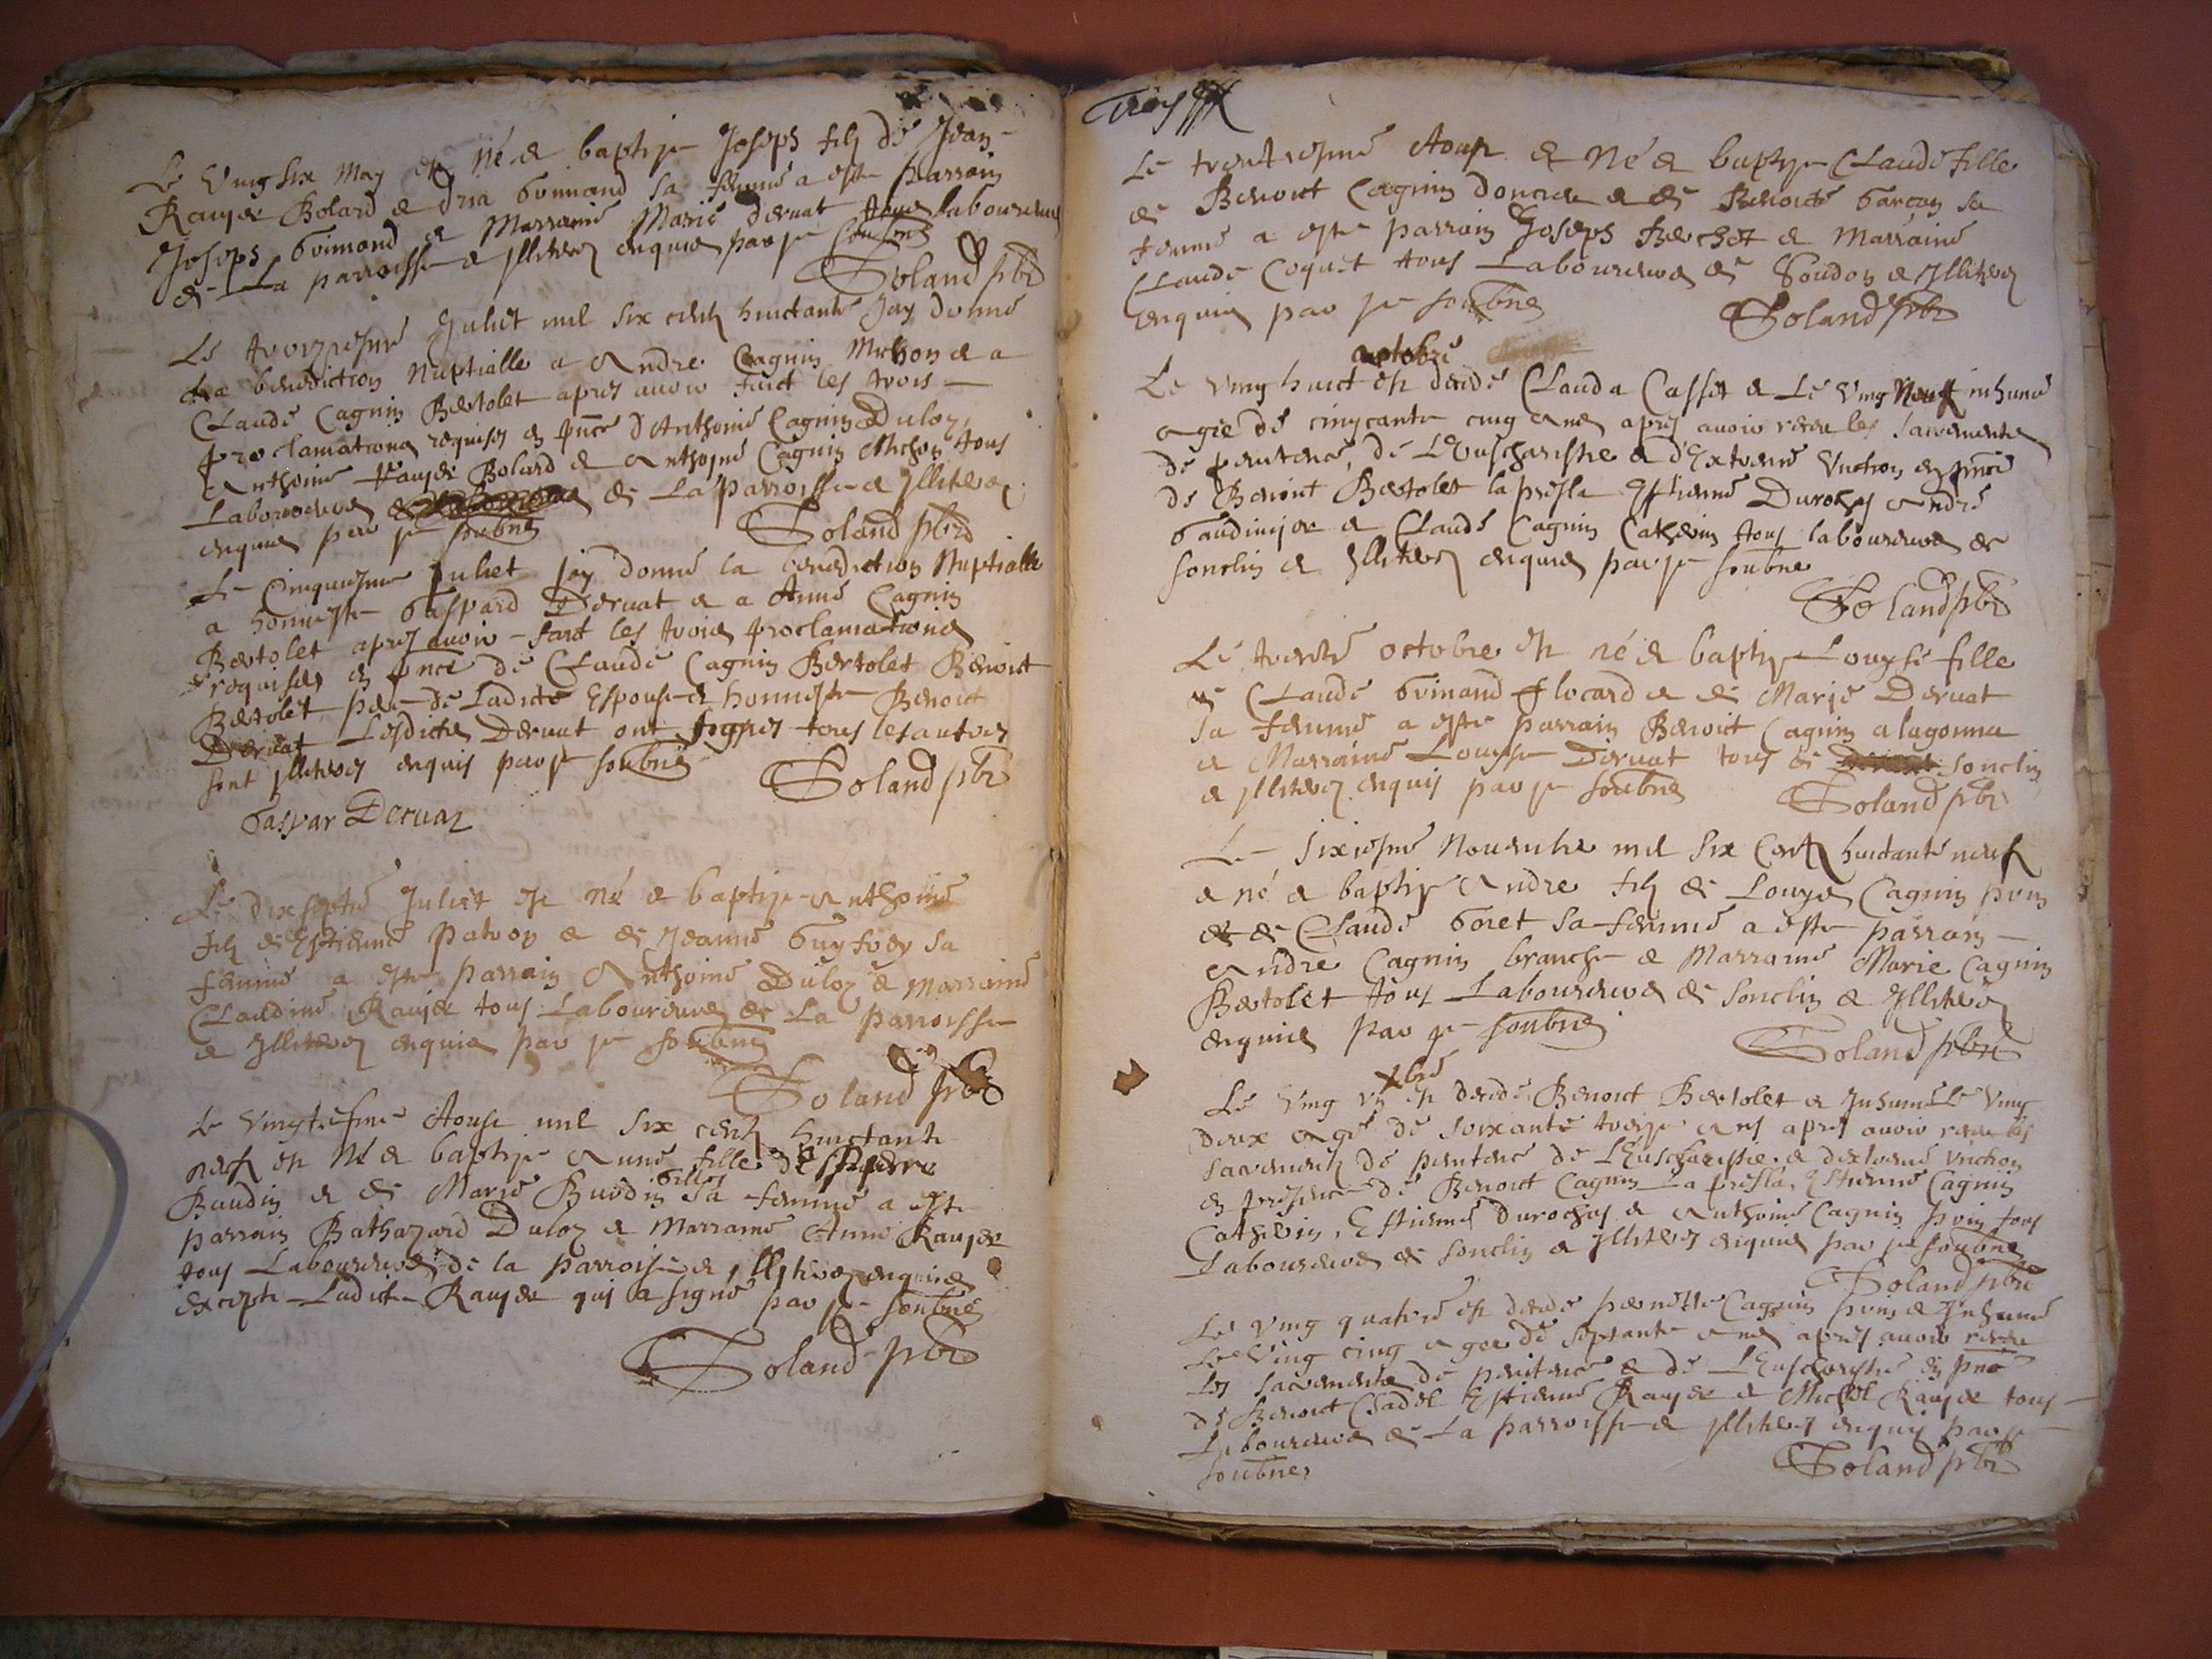 Le Vingsix May est né et baptise Joseps filz de Jean
Raujer Bolard et dna Guinand sa femme a este parrain
Joseps Guimand et Marraine Marie dervat tous laboureurs
de La parroisse et Illiteres enquis par je soubne
Soland pbr
Le troiziesme Juliet mil six centz huictante Jay donné
La benediction Nuptialle a Andre Cagnin Michon et a
Claude Cagnin Bertolet apres avoir faict les trois
proclamations requises en pnce d'Anthoine Cagnin Duloz
Anthoine Raujer Bolard et Anthoyne Cagnin Michon tous
Laboureurs de La parroisse et Illiteres
enquis par je soubne
Soland pbr
Le Cinquiesme Juliet jay donné la benediction Nuptialle
a honneste Gaspard Dervat et a Anne Cagnin
Bertolet apres avoir fait les trois proclamations
requises en pnce de Claude Cagnin Bertolet Benoict
Bertolet pere de Ladicte Espouse et honneste Benoict
Dervat Lesdictes Dervat ont signes tous les autres
sont Illiteres enquis par je soubne
Soland pbr
Gaspar Dervaz
Le dixseptie Juliet est né et baptise Anthoine
filz de Estienne patroy et de Jeanne Guyfrey sa
femme a este parrain Anthoine Duloz et marraine
Claudine Raujer tous Laboureurs de La parroisse
et Illiteres enquis par je soubne
Soland pbr
Le Vingtiesme Aoust mil six centz huictante
neufz est né et baptise Anne fille de
Baudin et de Marie Burdin sa femme a este
parrain Bathazard Duloz et Marraine Anne Raujer
tous Laboureurs de la parroisse et Illiteres enquis
excepte Ladicte Raujer qui a signé par je soubne
Soland pbr
Le trentiesme Aoust et Né et baptise Claude fille
de Benoict Cagnin doncieu et de Benoicte Garçon sa
femme a este parrain Joseps Berchet et Marraine
Claude Coquet tous Laboureurs de Soudon et Illiteres
enquis par je soubne
Soland pbr
octobre
Le Ving huict est decede Clauda Casset et Le Ving Neufz inhumé
agee de cinqcante cinq ans apres avoir receu les sacrements
de penitence, de L'Euscharistie et d'Extreme Unction en pnce
de Benoict Bertolet la presle Estienne Durochas Andre
Gaudinjer et Claude Cagnin Cathevin tous laboureurs de
sonclin et Illiteres enquis par je soubne
Soland pbr
Le trente octobre est né et baptise Louyse fille
de Claude Guinand Flocard et de Marie Dervat
sa femme a este parrain Benoict Cagnin alagonna
et Marraine Louyse Dervat tous de sonclin
et Illiteres enquis par je soubne
Soland pbr
Le sixiesme Novembre mil six Centz huictante neufz
e né et baptise Andre filz de Louys Cagnin prin
et de Claude Goret sa femme a este parrain
Andre Cagnin branche et Marraine Marie Cagnin
Bertolet tous Laboureurs de sonclin et Illiteres
enquis par je soubne
Soland pbr
xbre
Le Ving un est decede Benoict Bertolet et Inhumé Le Ving
deux agé de soixante treize ans apres avoir receu les
sacrementz de penitence de L'Euscharistie et dextreme unction
en presence de Benoict Cagnin La presla, Estienne Cagnin
Cathevin, Estienne Durochas et Anthoine Cagnin prin tous
Laboureurs de sonclin et Illiteres enquis par je soubne
Soland pbr
Le Ving quatrie est decede pernette Cagnin prin et Inhumé
Le Ving cinq agee de septante ans apres avoir receu
Les sacrements de penitence et de L'Euscharistie en pnce
de Benoict Chadel Estienne Raujer et Michel Raujer tous
Laboureurs de La parroisse et Illiteres enquis par je
soubne
Soland pbr